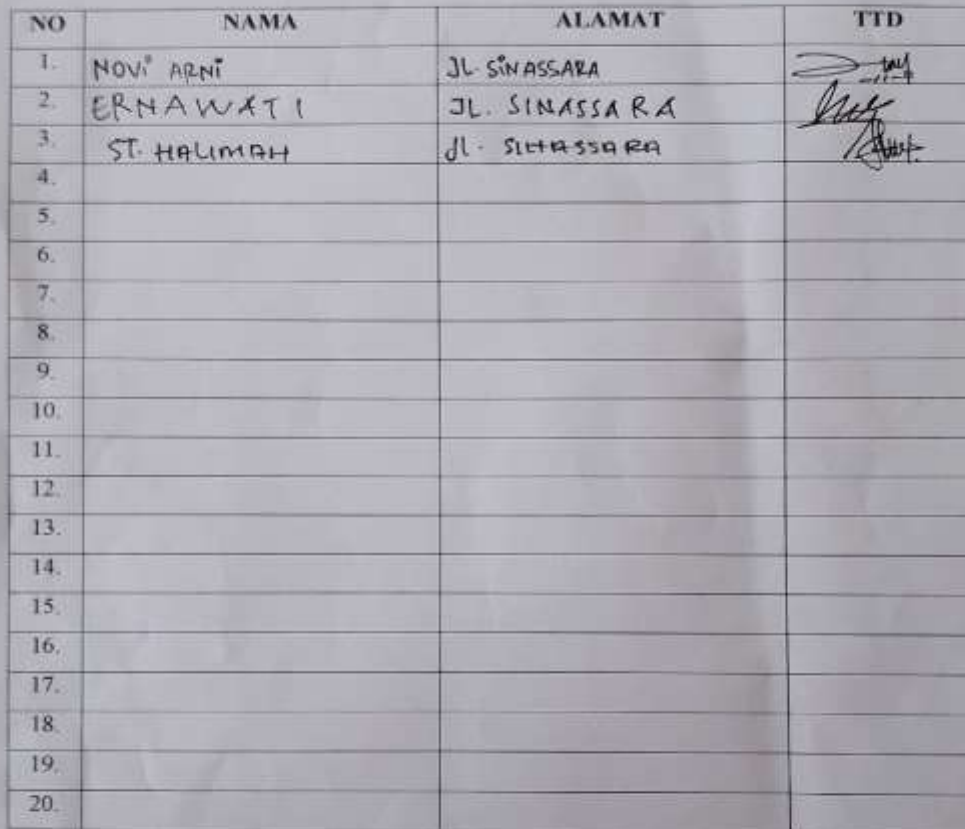 NO NAMA ALAMAT TTD
1. NOVI ARNI JL. SINASSARA
2. ERNAWATI JL. SINASSARA
3. ST. HALIMAH Jl. SINASSARA
4.
5.
6.
7.
8.
9.
10.
11.
12.
13.
14.
15.
16.
17.
18.
19.
20.